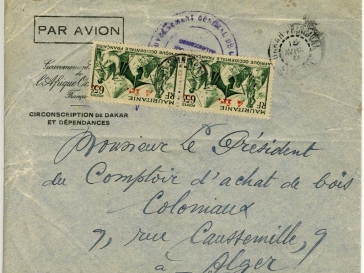 PAR AVION
Gouvernement
de
l'Afrique Oc
França
CIRCONSCRIPTION DE DAKAR
ET DÉPENDANCES
MAURITANIE
AFRIQUE OCCIDENTALE FRANÇAISE
RF
65c
MAURITANIE
AFRIQUE OCCIDENTALE FRANÇAISE
RF
65c
Monsieur Le Président
du Comptoir d'achat de bois
Coloniaux
9, rue Caussemille, 9
à Alger